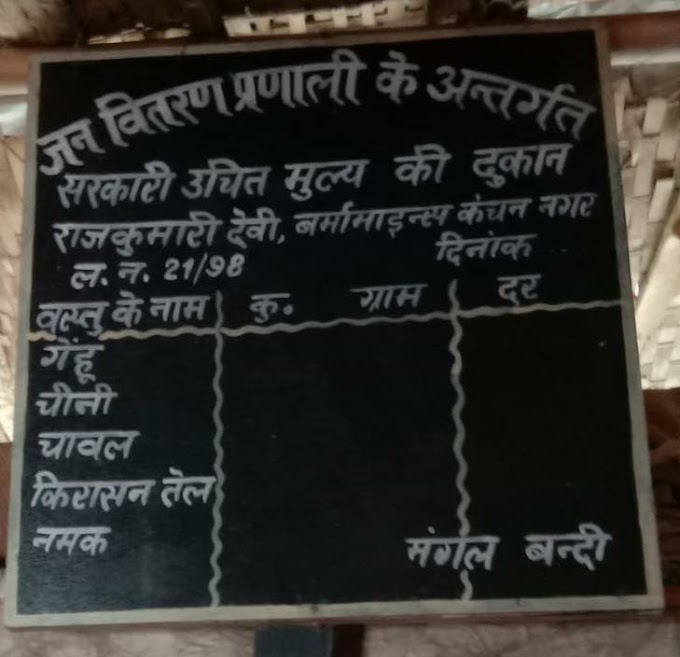 जन वितरण प्रणाली के अन्तर्गत
सरकारी उचित मुल्य की दुकान
राजकुमारी देवी, बर्मामाइन्स कंचन नगर
ल. न. 21/98 दिनांक
वस्तु के नाम कु. ग्राम दर
गेंहू
चीनी
चावल
किरासन तेल
नमक मंगल बन्दी